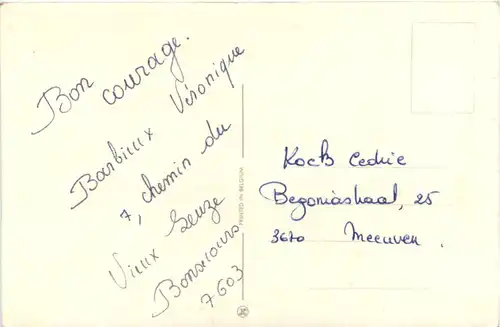 Bon
courage.
Barbieux Véronique
7, chemin du
Vieux Leuze
Bonsecours
7603
PRINTED IN BELGIUM
Kock Cedric
Begoniastraat, 25
3670 Meeuwen.